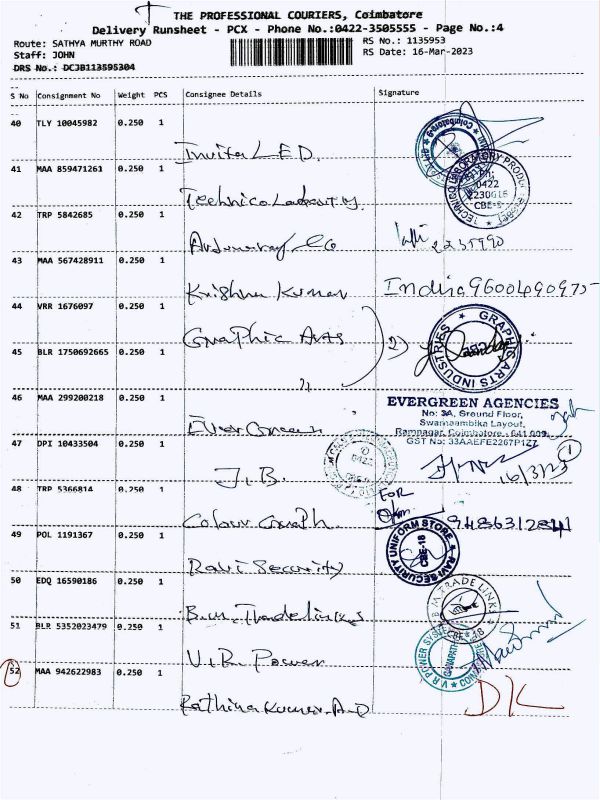 THE PROFESSIONAL COURIERS, Coimbatore
Delivery Runsheet - PCX - Phone No.:0422-3505555 - Page No.:4
Route: SATHYA MURTHY ROAD
RS No.: 1135953
Staff: JOHN
RS Date: 16-Mar-2023
DRS No.: DCJB113595304
S No Consignment No Weight PCS Consignee Details Signature
40 TLY 10045982 0.250 1
Invita L.E.D.
41 MAA 859471261 0.250 1
Technico
0422
2230616
CBE-9
42 TRP 5842685 0.250 1
2235990
43 MAA 567428911 0.250 1
Krishna Kumar Indira 9600490975
44 VRR 1676097 0.250 1
Graphic Arts 2)
GRAPHIC ARTS INDUSTRIES
45 BLR 1750692665 0.250 1
46 MAA 299200218 0.250 1
EVERGREEN AGENCIES
No: 3A, Ground Floor,
Swamaambika Layout,
Ramnagar, Coimbatore - 641 009.
GST No: 33AAEFE2267P1Z7
Ever Green
47 DPI 10433504 0.250 1
J.B. 16/3/23 1
48 TRP 5366814 0.250 1
FOR
Colour Graph 9486312841
49 POL 1191367 0.250 1
RAVI SECURITY UNIFORM STORE
CBE-18
Ravi Security
50 EDQ 16590186 0.250 1
B.M. Trade links
B.M TRADE LINKS
CBE-18
51 BLR 5352023479 0.250 1
V.R. Power
V R POWER
52 MAA 942622983 0.250 1
Rathina Kumar A.D DK